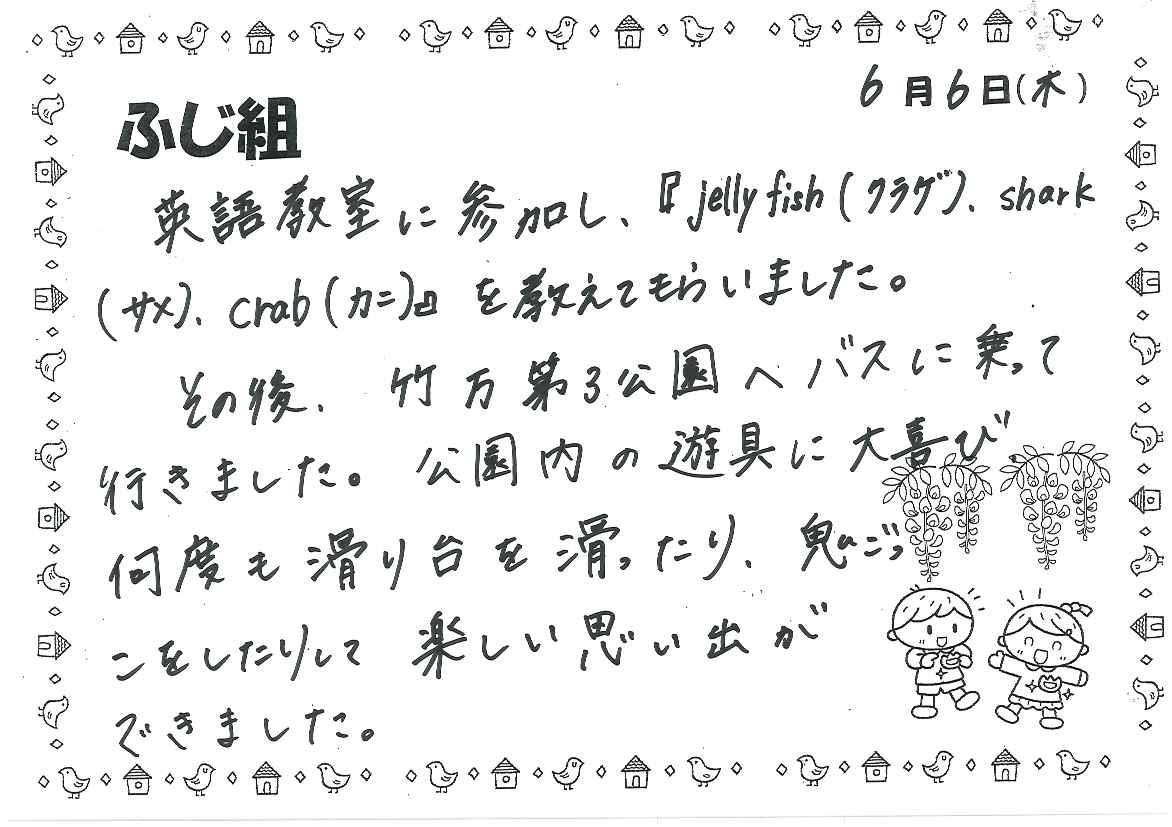 6月6日(木)
ふじ組
英語教室に参加し、『jelly fish(クラゲ)、shark
(サメ)、crab(カニ)』を教えてもらいました。
その後、竹万第3公園へバスに乗って
行きました。公園内の遊具に大喜び
何度も滑り台を滑ったり、鬼ごっ
こをしたりして楽しい思い出が
できました。